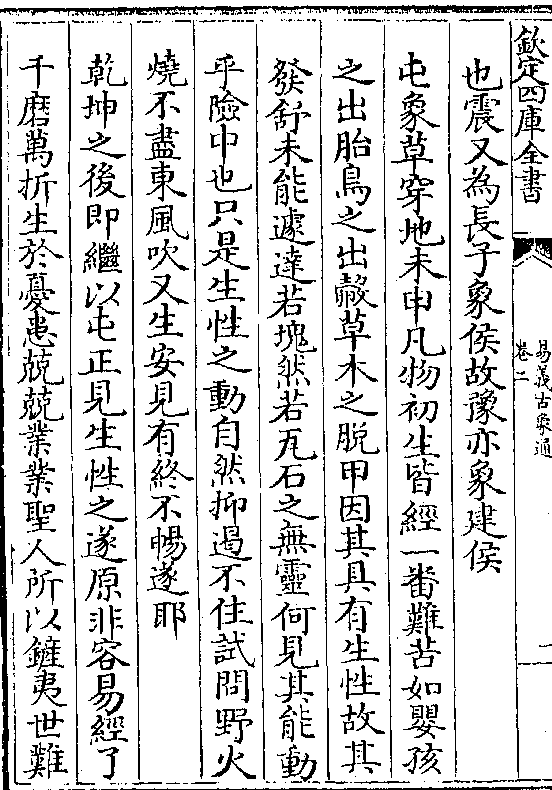 欽定四庫全書
易義古象通
卷二
一
也震又為長子象侯故豫亦象建侯
屯象草穿地未申凡物初生皆經一番難苦如嬰孩
之出胎鳥之出㲉草木之脫甲因其具有生性故其
發舒未能遽達若塊然若瓦石之無靈何見其能動
乎險中也只是生性之動自然抑遏不住試問野火
燒不盡東風吹又生安見有終不暢遂耶
乾坤之後即繼以屯正見生性之遂原非容易經了
千磨萬折生於憂患兢兢業業聖人所以鏟夷世難